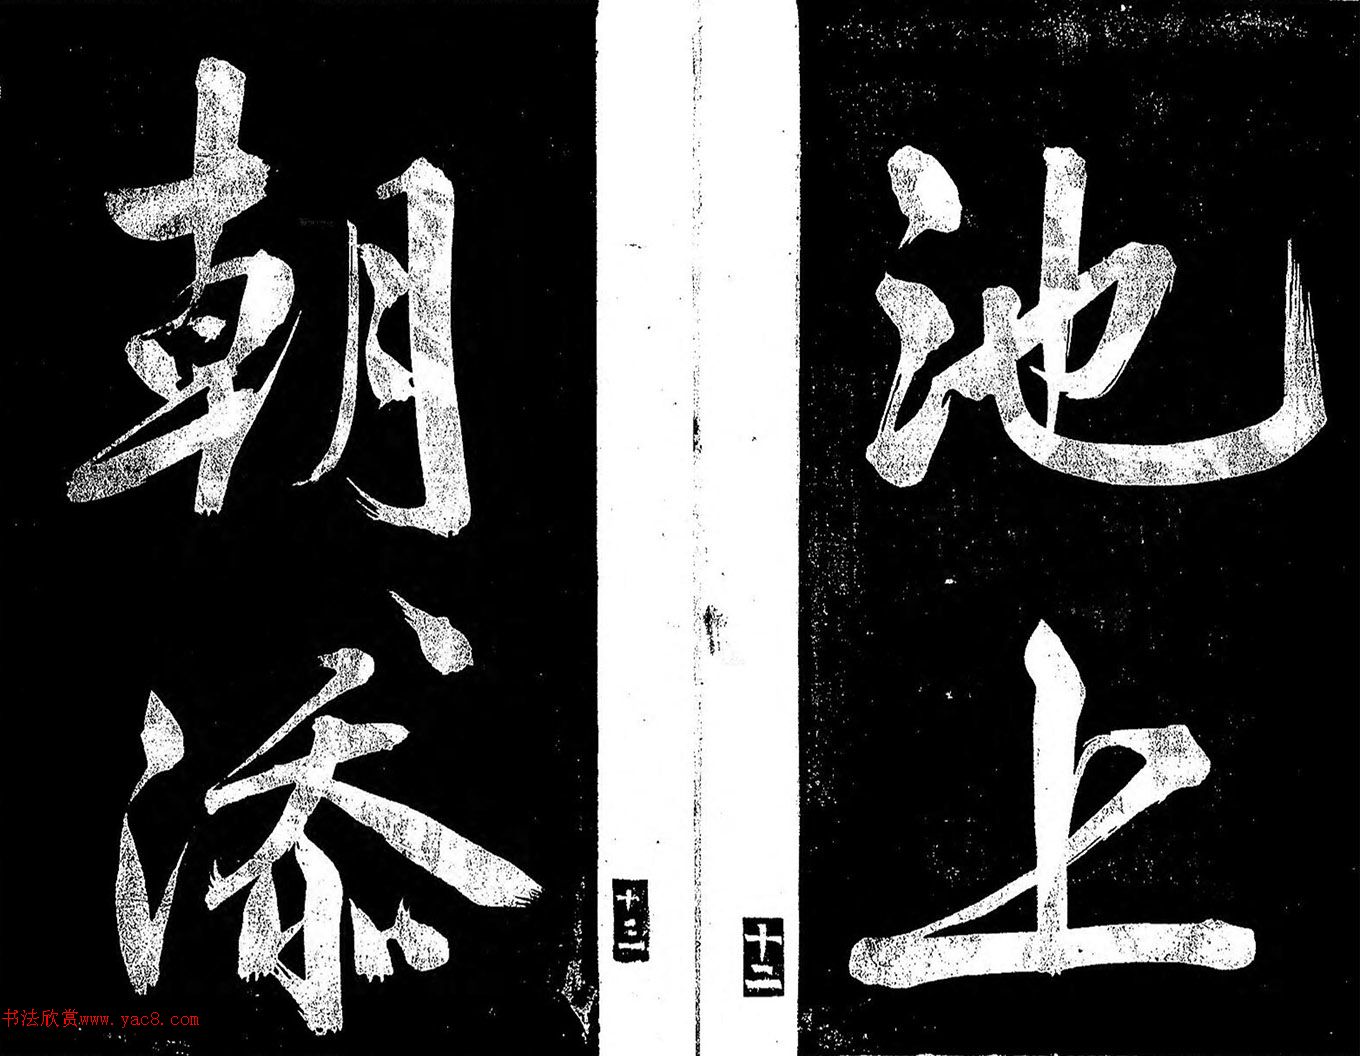 池上
朝添
十二
十三
书法欣赏www.yac8.com